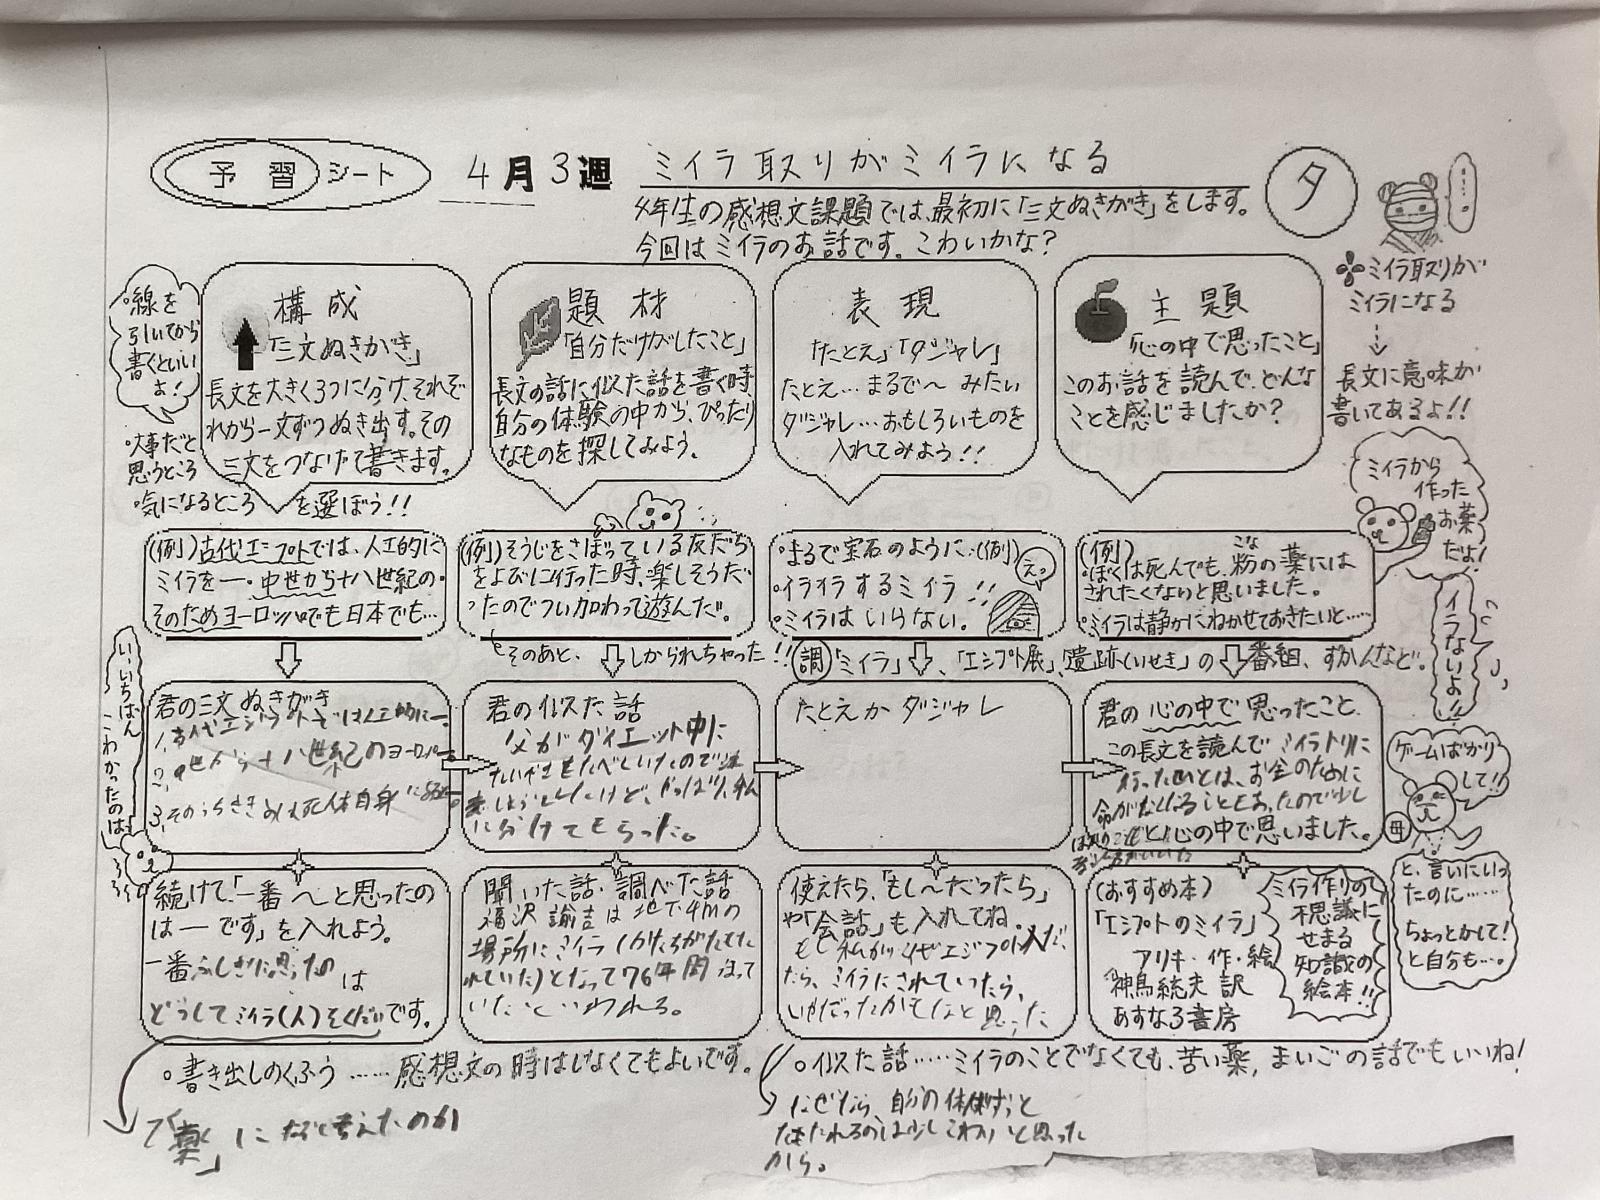 予習シート
4月3週
ミイラ取りがミイラになる
タ
4年生の感想文課題では、最初に「三文ぬきがき」をします。
今回はミイラのお話です。こわいかな?
・線を
引いてから
書くといい
よ!
構成
「三文ぬきがき」
長文を大きく3つに分け、それぞ
れから一文ずつぬき出す。その
三文をつなげて書きます。
・大事だと
思うところ
・気になるところ を選ぼう!!
題材
「自分だけがしたこと」
長文の話に似た話を書く時、
自分の体験の中から、ぴったり
なものを探してみよう。
表現
「たとえ」「ダジャレ」
たとえ…まるで〜みたい
ダジャレ…おもしろいものを
入れてみよう!!
主題
「心の中で思ったこと」
このお話を読んで、どんな
ことを感じましたか?
ミイラ取りが
ミイラになる
長文に意味が
書いてあるよ!!
ミイラから
作った
お薬
だよ!
イラないよ!!
(例)古代エジプトでは、人工的に
ミイラを一・中世から十八世紀の・
そのためヨーロッパでも日本でも…
(例)そうじをさぼっている友だち
をよびに行った時、楽しそうだ
ったのでつい加わって遊んだ。
そのあと、しかられちゃった!!
・まるで宝石のように(例)
・イライラするミイラ!!
・ミイラはいらない。
えっ
(例)
・ぼくは死んでも、粉の薬には
こな
されたくないと思いました。
・ミイラは静かにねかせておきたいと……
調「ミイラ」、「エジプト展」、「遺跡(いせき)」の番組、ずかんなど。
いちばん
こわかったのは
君の三文ぬきがき
1、古代エジプトでは人工的に一
3、そのうちさき 死体自身
君の似た話
父がダイエット中に
に分けてもらった。
たとえかダジャレ
君の心の中で思ったこと
この長文を読んでミイラトリに
行った とは、お金のために
命がなくなることもあったので少し
と心の中で思いました。
ゲームばかり
して!!
母
と、言いにいっ
たのに……
ちょっとかして!
と自分も…。
続けて「一番〜と思ったの
は―です」を入れよう。
一番ふしぎに思ったの は
どうしてミイラ(人) です。
聞いた話・調べた話
福沢諭吉は地下4mの
場所にミイラ(かたちがたもた
れていた)となって76年間
いたといわれる。
使えたら、「もし〜だったら」
や「会話」も入れてね。
もし私が エジプト人だ
たら、ミイラにされていったら、
と思った
(おすすめ本)
「エジプトのミイラ」
アリキ・作・絵
神鳥統夫 訳
あすなろ書房
ミイラ作りの
不思議に
せまる
知識の
絵本!!
・書き出しのくふう……感想文の時はしなくてもよいです。
・似た話……ミイラのことでなくても、苦い薬、まいごの話でもいいね!
「薬」になど考えたのか
なぜなら、自分の体
のは少しこわいと思った
から。